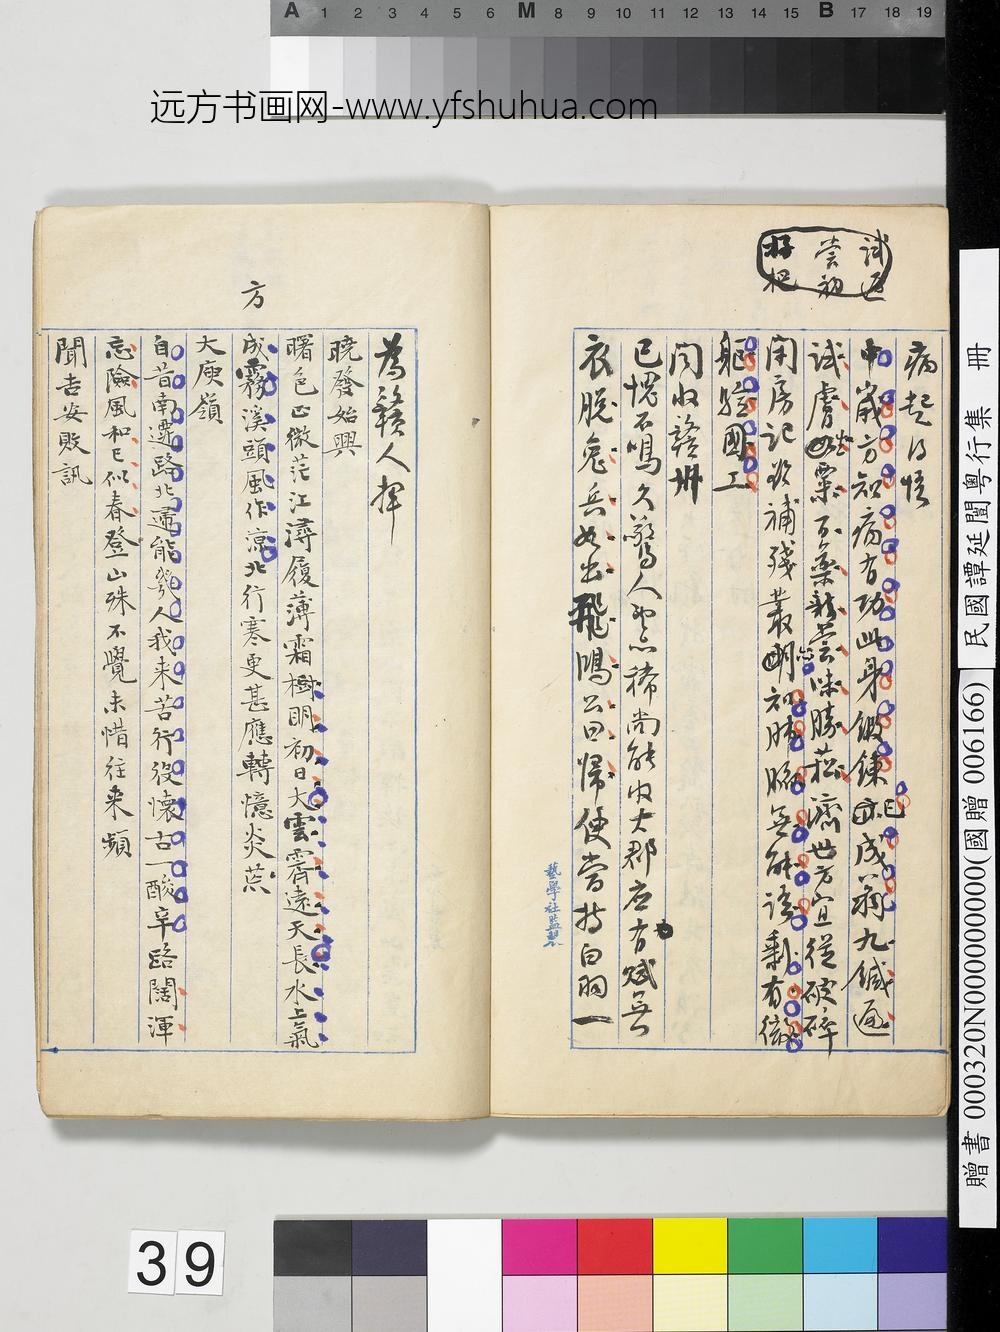 A 1 2 3 4 5 6 M 8 9 10 11 12 13 14 15 B 17 18 19
远方书画网-www.yfshuhua.com
試遍
嘗初
好把
病起口憶
中歲方知病有功此身鍛鍊已成翁九鍼遍
試膚粟百藥新嘗味勝菘濟世方宜從破碎
閉房記欲補殘叢明知肺腑無能語剩有微
軀驗國工
聞收贛州
已愧不鳴久驚人中亦稀尚能收大郡应有賦無
衣脫兔兵如出飛鴻公曰歸使當持白羽一
藝學社監製
為贛人揮
曉發始興
曙色正微茫江潯履薄霜樹明初日大雲霽遠天長水上氣
成霧溪頭風作涼北行寒更甚應轉憶炎荒
方
大庾嶺
自昔南遷路北還能幾人我来苦行役懷古一酸辛路闊渾
忘險風和已似春登山殊不覺未惜往来頻
聞吉安敗訊
民國譚延闓粵行集 冊
贈書 000320N000000000(國贈 006166)
39